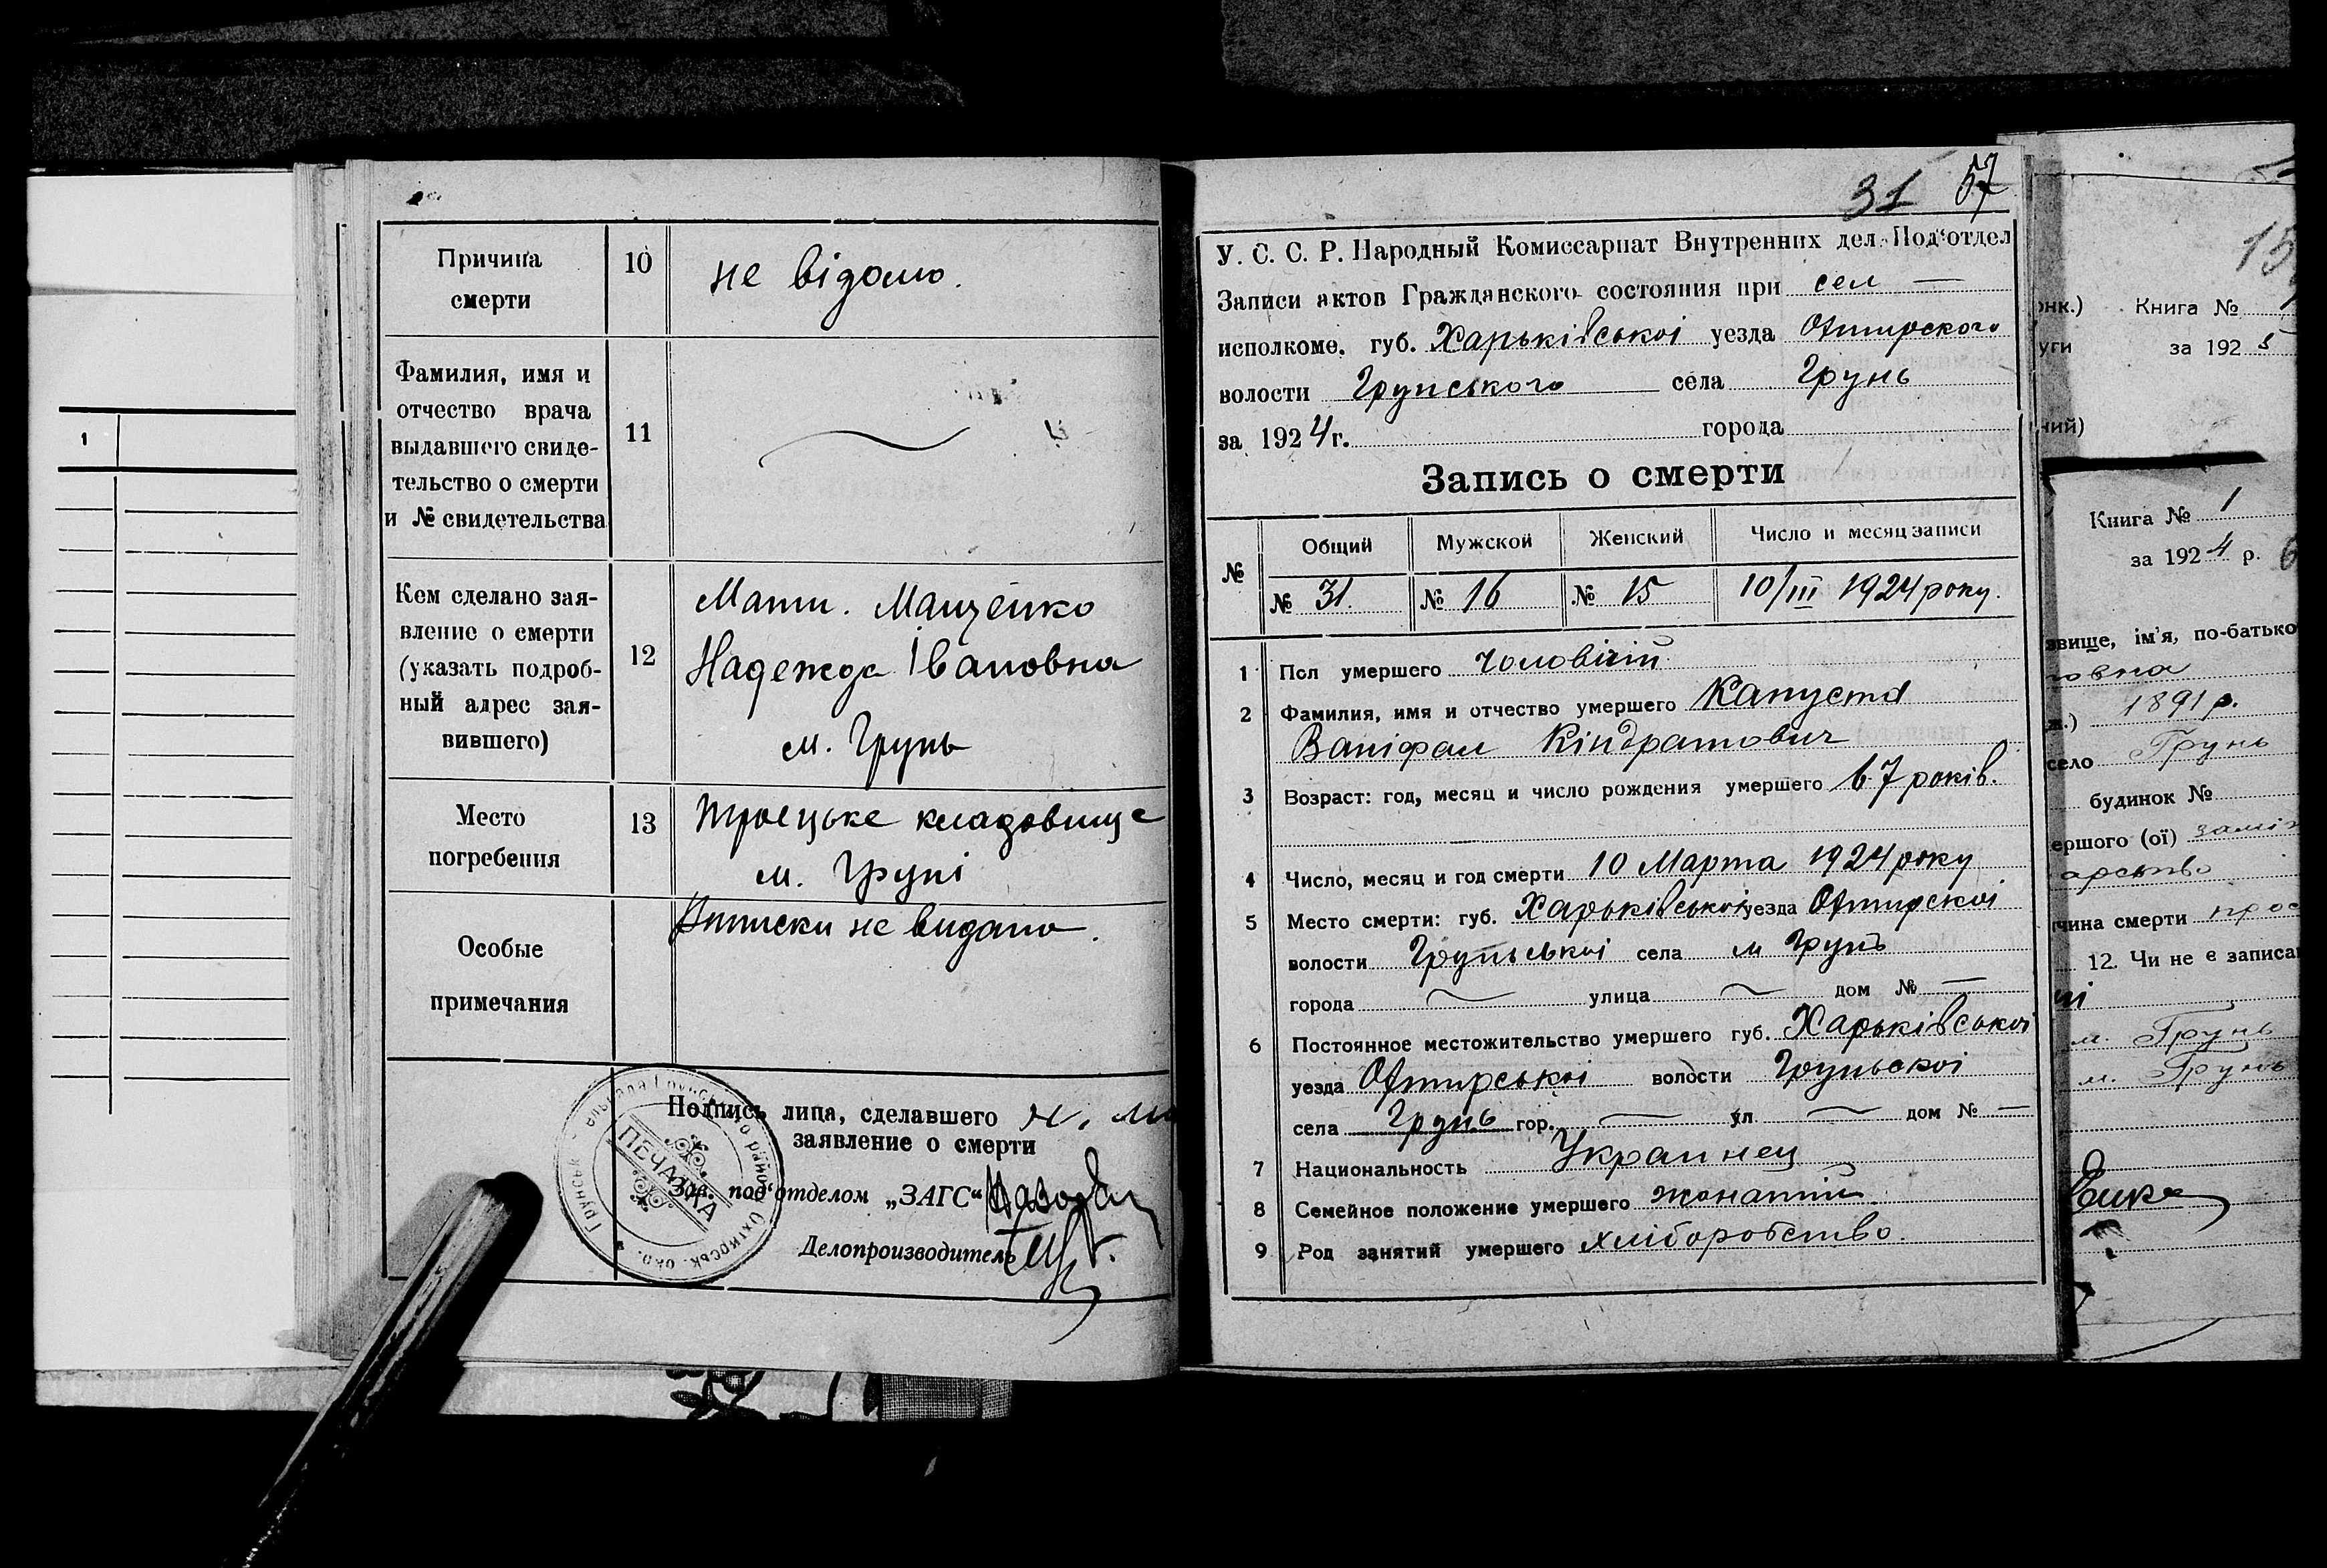 Причина смерти
10
не відомо.
Фамилия, имя и
отчество врача
выдавшего свиде-
тельство о смерти
и № свидетельства
11
Кем сделано зая-
вление о смерти
(указать подроб-
ный адрес зая-
вившего)
12
Мати. Мащенко
Надежда Івановна
м. Грунь
Место
погребения
13
Троецьке кладовище
м. Груні
Особые
примечания
Виписки не видано.
Подпись лица, сделавшего
заявление о смерти
Зав. под'отделом „ЗАГС“
Делопроизводитель
ПЕЧАТКА
31 57
У. С. С. Р. Народный Комиссариат Внутренних дел. Под'отдел
Записи актов Гражданского состояния при сел —
исполкоме. губ. Харьківськоі уезда Охтирского
волости Грунського села Грунь
за 1924 г. города
Запись о смерти
№ Общий Мужской Женский Число и месяц записи
№ 31. № 16 № 15 10/III 1924 року.
1 Пол умершего чоловічій
2 Фамилия, имя и отчество умершего Капуста
Ваніфат Кіндратович
3 Возраст: год, месяц и число рождения умершего 67 років.
4 Число, месяц и год смерти 10 Марта 1924 року
5 Место смерти: губ. Харьківськоі уезда Охтирскоі
волости Груньськоі села м Грунь
города улица дом № —
6 Постоянное местожительство умершего губ. Харьківськоі
уезда Охтирськоі волости Груньскоі
села Грунь гор. ул дом № —
7 Национальность Украинец
8 Семейное положение умершего жонатий
9 Род занятий умершего хліборобство.
Книга №
за 1925
Книга № 1
за 1924 р.
звище, ім'я, по-батько
овна
1891 р.
село Грунь
будинок №
ершого (ої) заміж
арство
чина смерти
12. Чи не є записа
м. Грунь
м. Грунь
1